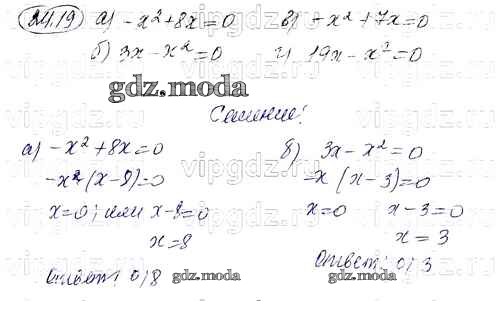 24.19 а) -x²+8x=0 в) -x²+7x=0
б) 3x-x²=0 г) 19x-x²=0
gdz.moda
Решение:
а) -x²+8x=0 б) 3x-x²=0
-x²(x-8)=0 -x(x-3)=0
x=0; или x-8=0 x=0 x-3=0
x=8 x=3
Ответ: 0; 8 Ответ: 0; 3
gdz.moda gdz.moda
vipgdz.ru